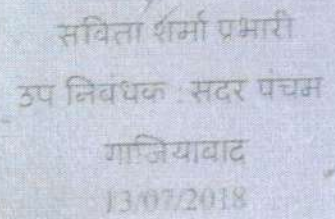 सविता शर्मा प्रभारी
उप निबंधक : सदर पंचम
गाजियाबाद
13/07/2018